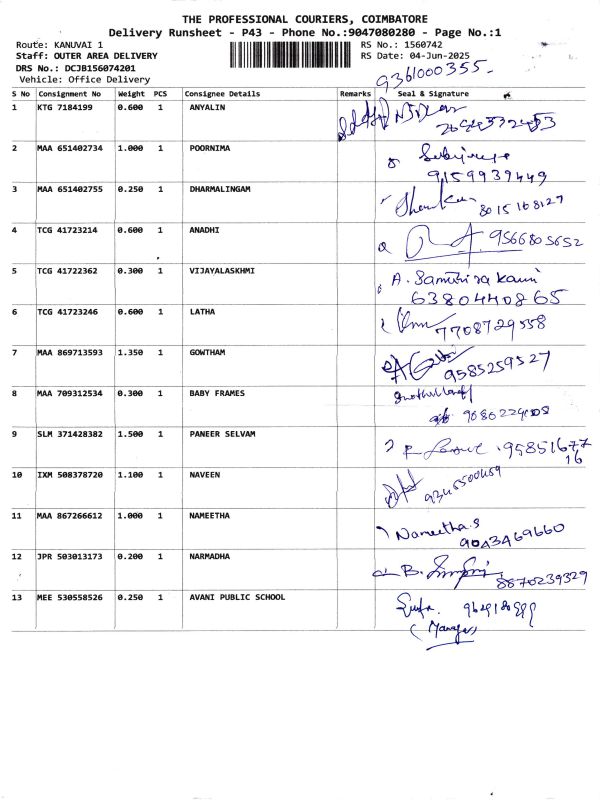 THE PROFESSIONAL COURIERS, COIMBATORE
Delivery Runsheet - P43 - Phone No.:9047080280 - Page No.:1
Route: KANUVAI 1 RS No.: 1560742
Staff: OUTER AREA DELIVERY RS Date: 04-Jun-2025
DRS No.: DCJB156074201
Vehicle: Office Delivery
9361000355
S No Consignment No Weight PCS Consignee Details Remarks Seal & Signature
1 KTG 7184199 0.600 1 ANYALIN
2 MAA 651402734 1.000 1 POORNIMA
9159939449
3 MAA 651402755 0.250 1 DHARMALINGAM
8015168127
4 TCG 41723214 0.600 1 ANADHI
9566805652
5 TCG 41722362 0.300 1 VIJAYALASKHMI
6380440865
6 TCG 41723246 0.600 1 LATHA
7708729558
7 MAA 869713593 1.350 1 GOWTHAM
9585259527
8 MAA 709312534 0.300 1 BABY FRAMES
9 SLM 371428382 1.500 1 PANEER SELVAM
95851677
16
10 IXM 508378720 1.100 1 NAVEEN
11 MAA 867266612 1.000 1 NAMEETHA
Nameetha.S
9043469660
12 JPR 503013173 0.200 1 NARMADHA
8870239329
13 MEE 530558526 0.250 1 AVANI PUBLIC SCHOOL
(Manager)